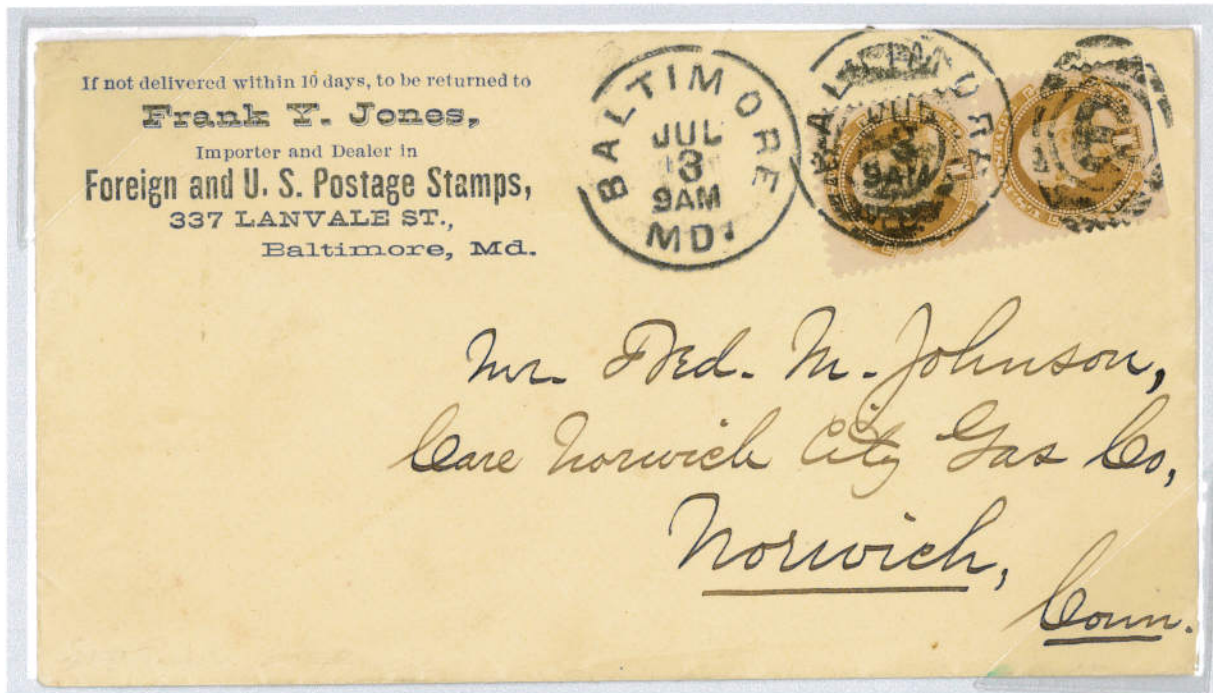 If not delivered within 10 days, to be returned to
Frank Y. Jones,
Importer and Dealer in
Foreign and U. S. Postage Stamps,
337 LANVALE ST.,
Baltimore, Md.
BALTIMORE
JUL
13
9AM
MD.
BALTIMORE
9AM
Mr. Fred. M. Johnson,
Care Norwich City Gas Co,
Norwich,
Conn.